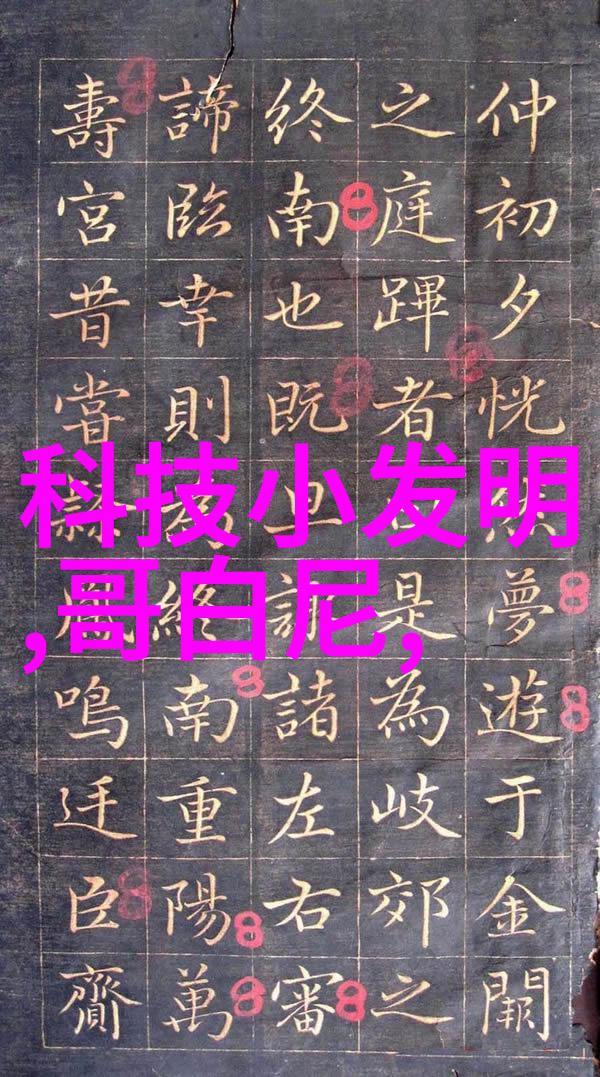 仲初夕恍夢遊于金闕
之庭蹕者是為岐郊之
終南也既詣諸左右審
諦臨幸則終南重陽萬
壽宮昔當鳴迋臣齎
科技小发明
,哥白尼,